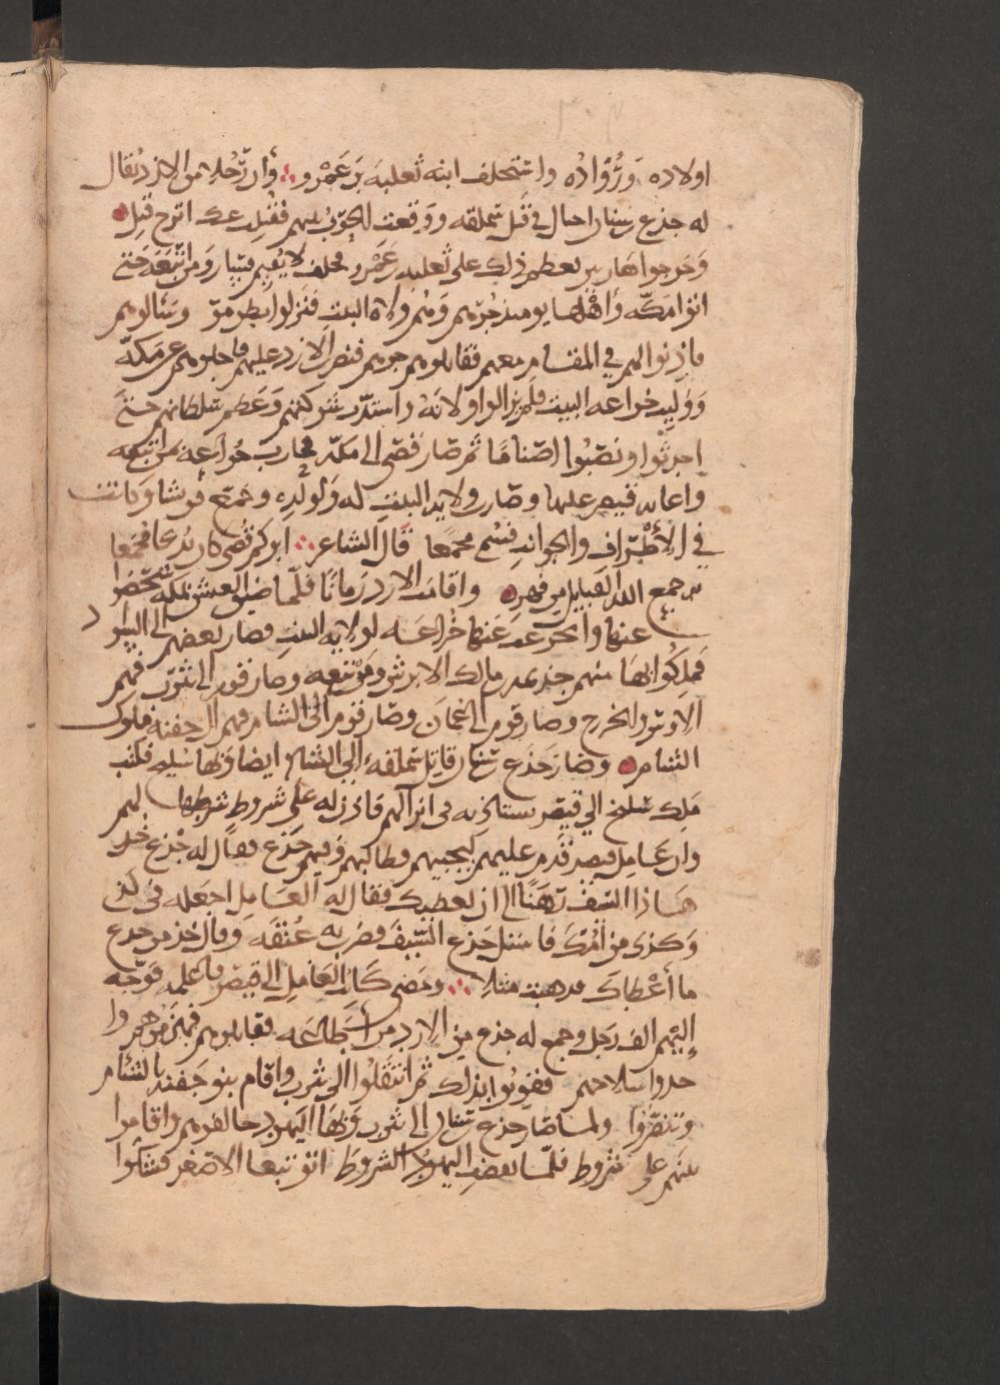 اولاده وروّاده واستخلف ابنه ثعلبة بن عمرو وأن رجلا من الازد يقال
له جذع بن سنان احتال في قتل سملقه ووقعت الحرب بينهم فقتلت عك ابرح قتل
وخرجوا هاربين لعظم ذلك على ثعلبه بن عمرو فحلف لا يقيم فسار ومن اتبعه حتى
اتوا مكّه وأهلها يومئذ جرهم وهم ولاة البيت فنزلوا بطن مرّ وسالوهم
ان ياذنوا لهم في المقام معهم فقاتلوهم جرهم فنصر الازد عليهم فاجلوهم عن مكّه
ووليت خزاعه البيت فلم يزالوا ولاته واشتدّت شوكتهم وعظم سلطانهم حتى
احدثوا ونصبوا اصناما ثم صار قصى الى مكّه فحارب خزاعة بمن اتبعه
واعانه قيصر عليها وصارت ولاية البيت له ولولده وجمع قريشا وكانت
في الأطراف والجوانب فسمى مجمعا قال الشاعر ابوكم قصى كان يدعا مجمعا
به جمع الله القبايل من فهر واقامت الازد زمانا فلمّا ضاق العيش بمكه شخصوا
عنها وانخزعت عنها خزاعه لولاية البيت فصار بعضهم الى السواد
فملكوا بها منهم جذيمه بن مالك الابرش ومن تبعه وصار قوم الى يثرب فهم
الاوس والخزرج وصار قوم الى عمان وصار قوم الى الشام فهم ال جفنه ملوك
الشام وصار جذع بن سنان قاتل سملقه الى الشام ايضا وبها سليح فكتب
ملك سليح الى قيصر يستاذنه في انزالهم فاذن له على شروط شرطها لهم
وان عامل قيصر قدم عليهم ليجبيهم فطالبهم وفيهم جذع فقال له جذع خذ
هذا السيف رهنا الى ان نعطيك فقال له العامل اجعله في كذى
وكذى من امّك فاستلّ جذع السيف فضرب به عنقه وقال خذ من جذع
ما أعطاك فذهبت مثلا ومضى كاتب العامل الى قيصر فاعلمه فوجّه
إليهم الف رجل وجمع له جذع من الازد من أطاعه فقاتلوهم فهزموهم وا
خذوا سلاحهم فقووا بذلك ثم انتقلوا الى يثرب واقام بنو جفنه بالشام
وتنصّروا ولما صار جذع بن سنان الى يثرب وبها اليهود حالفوهم واقاموا
بينهم على شروط فلمّا نقضت اليهود الشروط اتوا تبعا الاصغر فشكوا